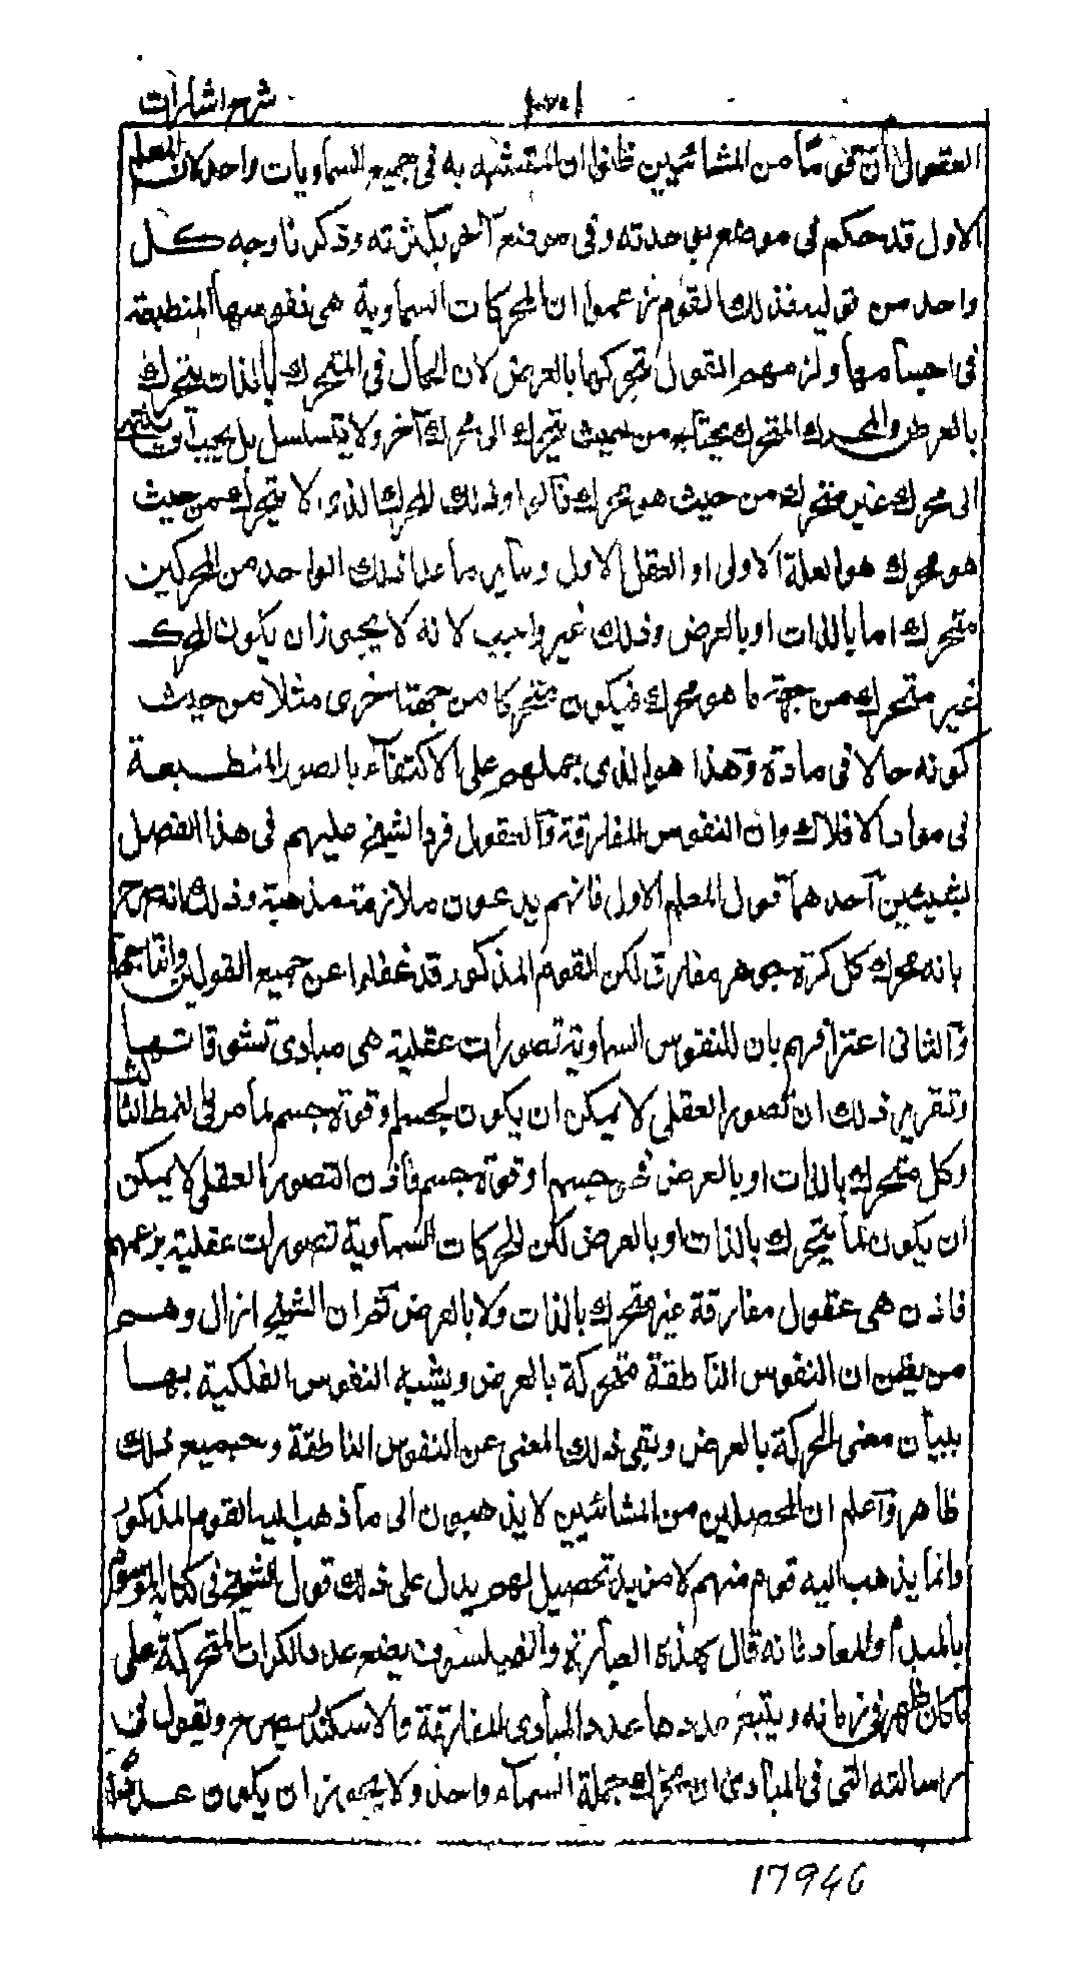 شرح اشارات
العقول لان قوما من المشائيين ظنوا ان المتشبه به فى جميع السماويات واحد كان المعلم
الاول قد حكم فى موضع بوحدته وفى موضع آخر بكثرته وذكرنا وجه كل
واحد من قوليه فذلك القوم زعموا ان المحركات السماوية هى نفوسها المنطبعة
فى اجسامها ولزمهم القول بتحركها بالعرض لان الحال فى المتحرك بالذات يتحرك
بالعرض والمحرك المتحرك يحتاج من حيث يتحرك الى محرك آخر ولا يتسلسل بل يجب ان ينتهى
الى محرك غير متحرك من حيث هو محرك قالوا وذلك المحرك الذى لا يتحرك من حيث
هو محرك هو العلة الاولى او العقل الاول وسائر ما عدا ذلك الواحد من المحركين
متحرك اما بالذات او بالعرض وذلك غير واجب لانه لا يجوز ان يكون المحرك
غير متحرك من جهة ما هو محرك فيكون متحركا من جهة اخرى مثلا من حيث
كونه حالا فى مادة وهذا هو الذى حملهم على الاكتفاء بالصور المنطبعة
فى مواد الافلاك وان النفوس المفارقة والعقول فرد الشيخ عليهم فى هذا الفصل
بشيئين احدهما قول المعلم الاول فانهم يدعون ملازمة مذهبه وذلك انه صرح
بانه محرك كل كرة جوهر مفارق لكن القوم المذكور قد غفلوا عن جميع القولين
والثانى اعترافهم بان للنفوس السماوية تصورات عقلية هى مبادى تشوقاتها
وتقرير ذلك ان تصور العقلى لا يمكن ان يكون لجسم او قوة جسم لما مر فى النمط الثالث
وكل متحرك بالذات او بالعرض فهو جسم او قوة جسم فاذن التصور العقلى لا يمكن
ان يكون لما يتحرك بالذات او بالعرض لكن للمحركات السماوية تصورات عقلية بزعمهم
فاذن هى عقول مفارقة غير متحرك بالذات ولا بالعرض ثم ان الشيخ ازال وهم
من يظن ان النفوس الناطقة متحركة بالعرض ويشبه النفوس الفلكية بها
ببيان معنى الحركة بالعرض ونفى ذلك المعنى عن النفوس الناطقة وجميع ذلك
ظاهر واعلم ان المحصلين من المشائيين لا يذهبون الى ما ذهب اليه القوم المذكور
وانما يذهب اليه قوم منهم لا مزيد تحصيل لهم يدل على ذلك قول الشيخ فى كتابه الموسوم
بالمبدأ والمعاد فانه قال بهذه العبارة والفيلسوف يضع عدد الكرات المتحركة على
ما كان ظهر فى زمانه ويتبع عددها عدد المبادى المفارقة والاسكندر يصرح ويقول فى
رسالته التى فى المبادى ان محرك جملة السماء واحد ولا يجوز ان يكون عددا
17946